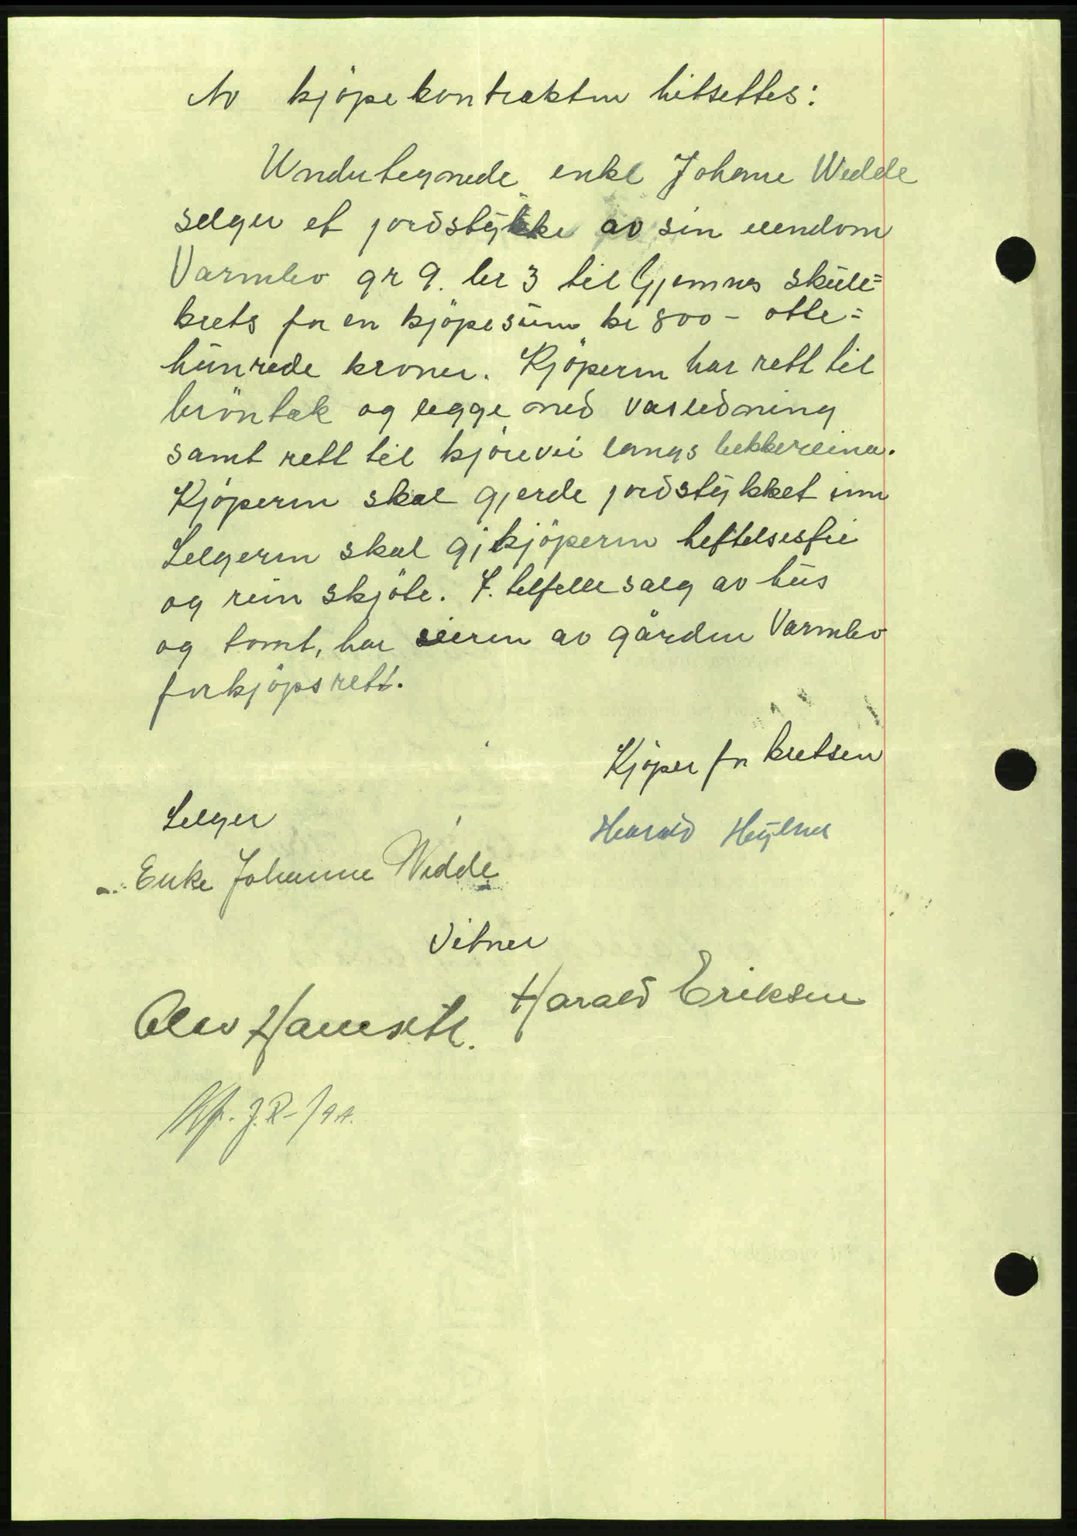 Av kjöpekontrakten hitsettes:
Undertegnede enke Johane Wedde
selger et jordstÿkke av sin eiendom
Varmbo gr 9. br 3 til Gjemnes skule=
krets for en kjöpesüm kr 800 – otte=
hünrede kroner. Kjöperen har rett til
bröntak og legge ned vasledning
samt rett til kjörevei langs bekkereina.
Kjöperen skal gjerde jordstÿkket inn
Selgeren skal gi kjöperen heftelsesfri
og rein skjöte. I. tilfelle salg av hüs
og tomt, har eieren av gården Varmbo
forkjöpsrett.
Kjöper for kretsen
Selger
Harald
Enke Johanne Wedde
Vitner
Harald Eriksen
Olav